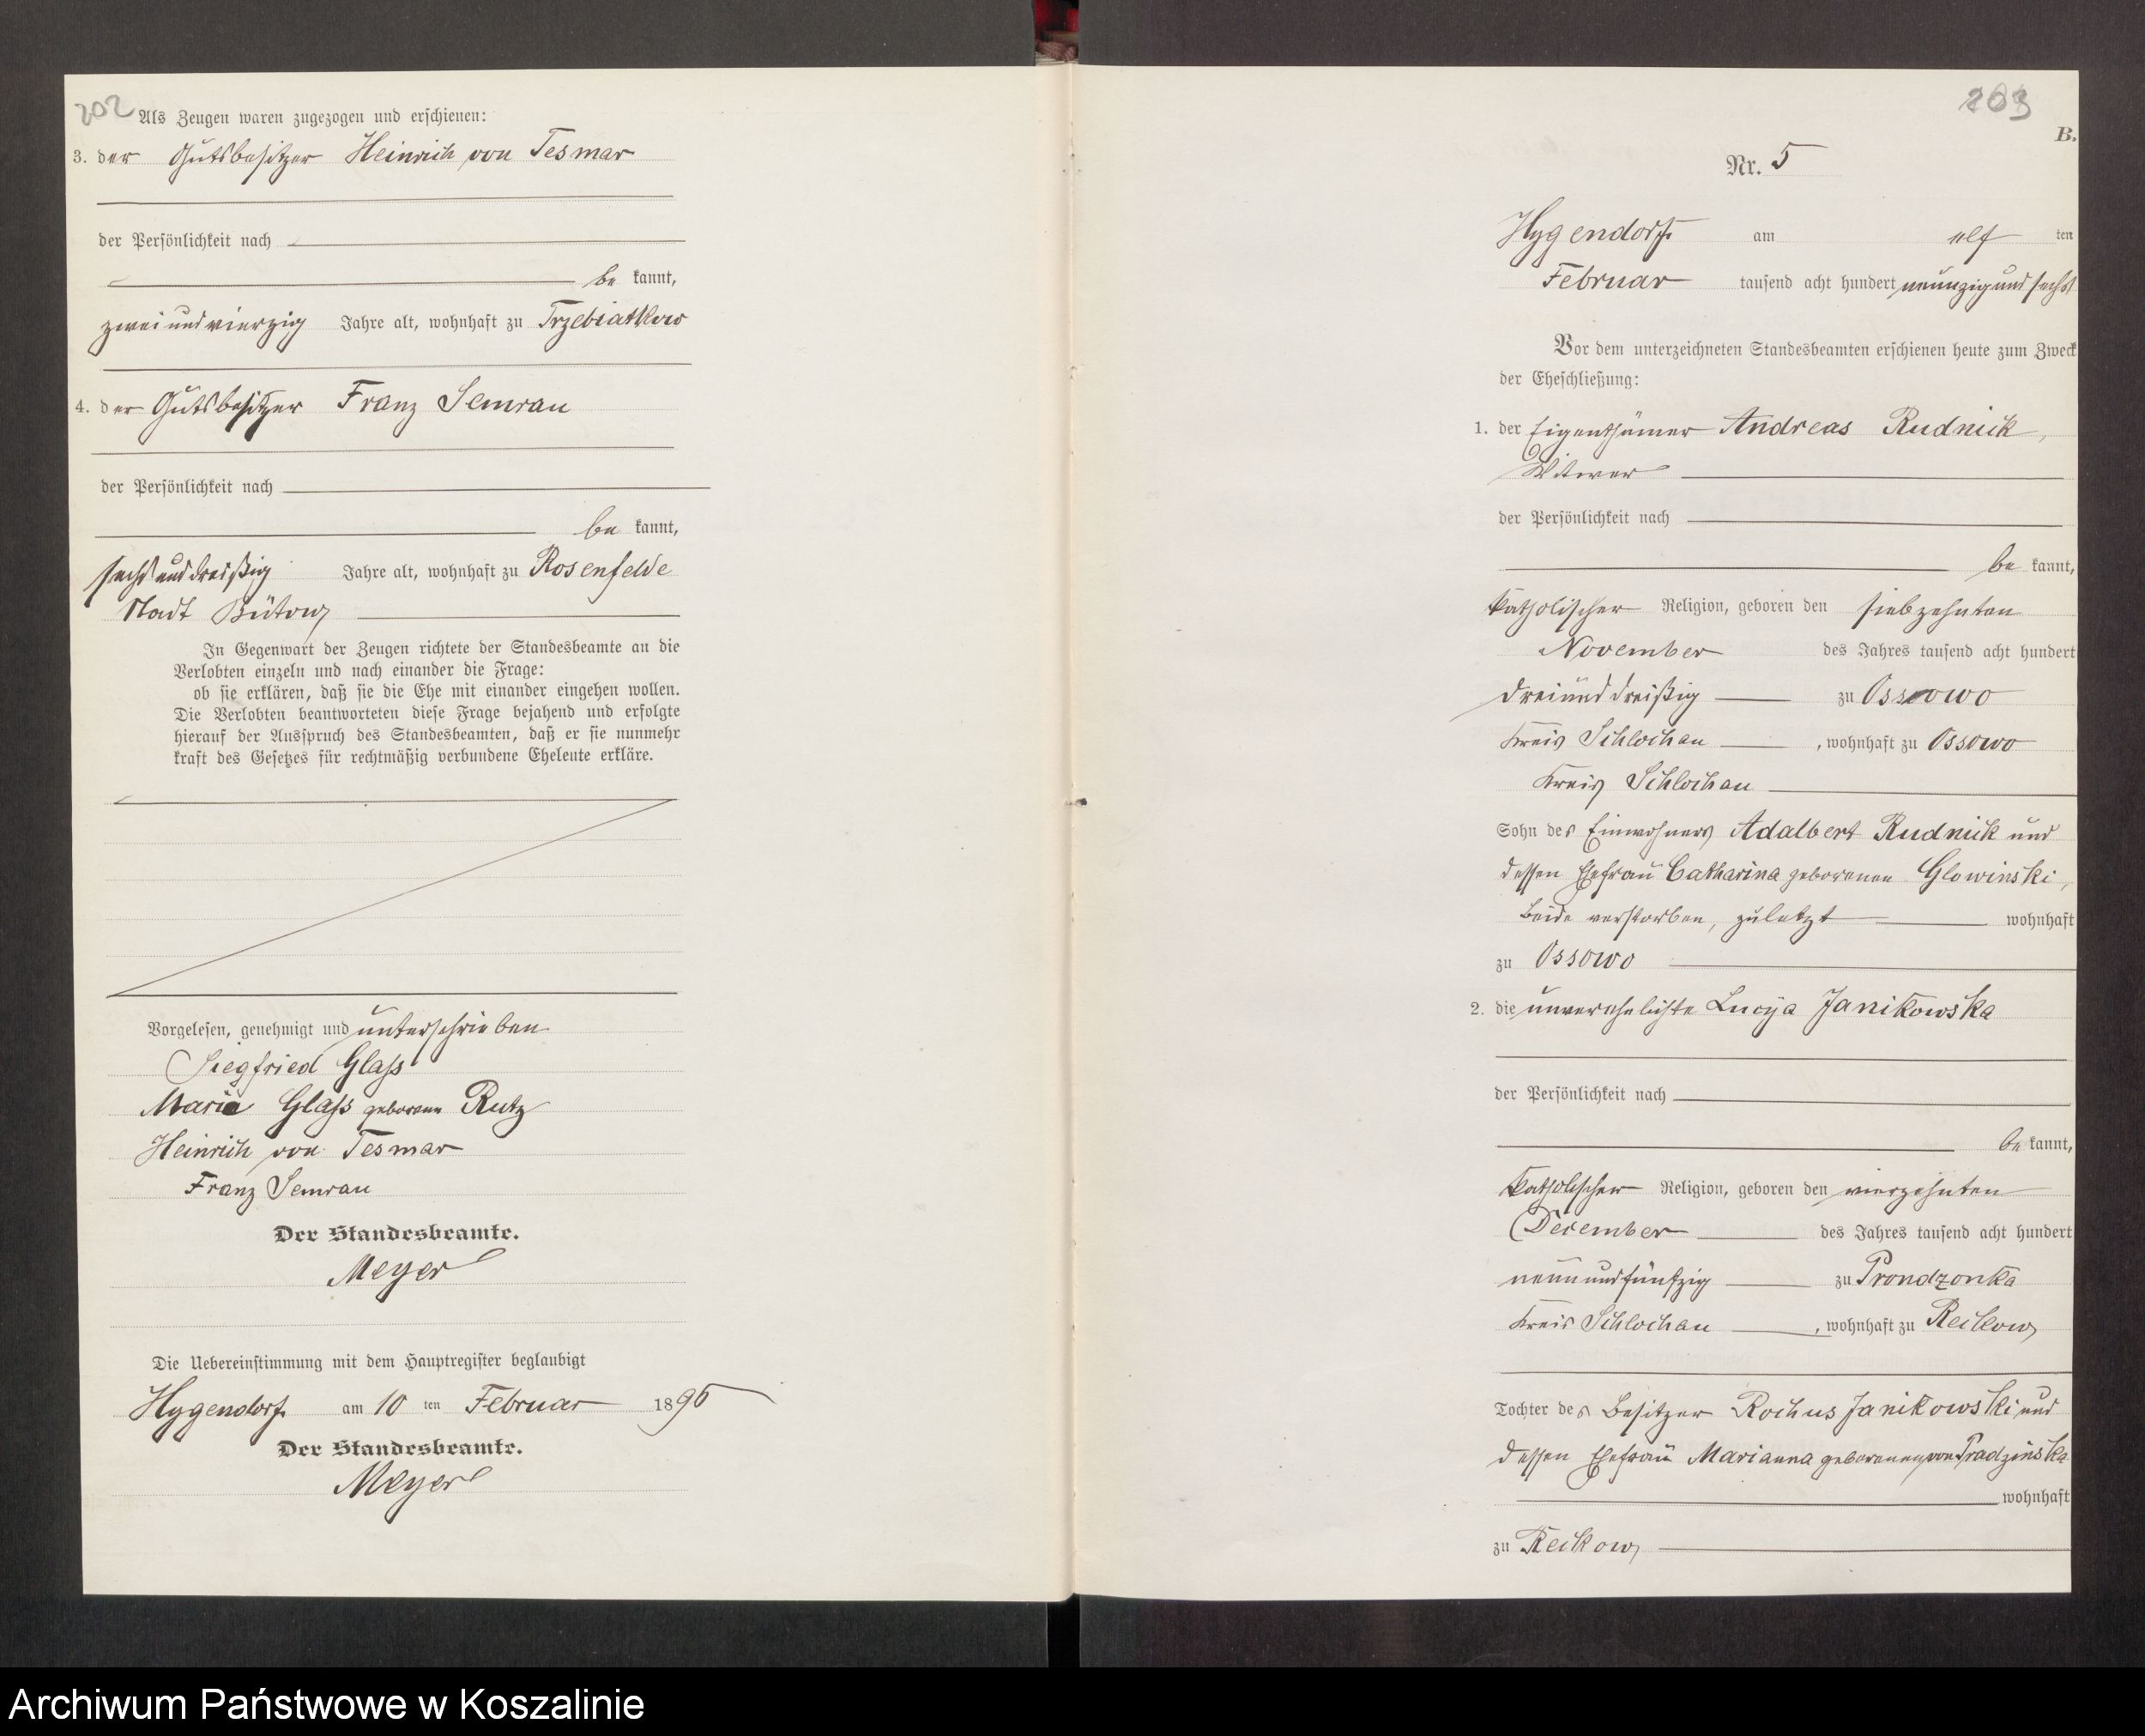 202
Als Zeugen waren zugezogen und erschienen:
3. der Gutsbesitzer Heinrich von Tesmar
der Persönlichkeit nach
be kannt,
zwei und vierzig Jahre alt, wohnhaft zu Trzebiatkow
4. der Gutsbesitzer Franz Semrau
der Persönlichkeit nach
be kannt,
sechs und dreißig Jahre alt, wohnhaft zu Rosenfelde
Stadt Bütow
In Gegenwart der Zeugen richtete der Standesbeamte an die
Verlobten einzeln und nach einander die Frage:
ob sie erklären, daß sie die Ehe mit einander eingehen wollen.
Die Verlobten beantworteten diese Frage bejahend und erfolgte
hierauf der Ausspruch des Standesbeamten, daß er sie nunmehr
kraft des Gesetzes für rechtmäßig verbundene Eheleute erkläre.
Vorgelesen, genehmigt und unterschrieben
Siegfried Glaß
Maria Glaß geborene Rutz
Heinrich von Tesmar
Franz Semrau
Der Standesbeamte.
Meyer
Die Uebereinstimmung mit dem Hauptregister beglaubigt
Hygendorf am 10 ten Februar 1896
Der Standesbeamte.
Meyer
203
B.
Nr. 5
Hygendorf am elf ten
Februar tausend acht hundert neunzig und sechs
Vor dem unterzeichneten Standesbeamten erschienen heute zum Zweck
der Eheschließung:
1. der Eigenthümer Andreas Rudnick,
Witwer
der Persönlichkeit nach
be kannt,
katholischer Religion, geboren den siebzehnten
November des Jahres tausend acht hundert
drei und dreißig zu Ossowo
Kreis Schlochau, wohnhaft zu Ossowo
Kreis Schlochau
Sohn des Einwohners Adalbert Rudnick und
dessen Ehefrau Catharina geborenen Glowinski,
Beide verstorben, zuletzt wohnhaft
zu Ossowo
2. die unverehelichte Lucya Janikowska
der Persönlichkeit nach
be kannt,
katholischer Religion, geboren den vierzehnten
December des Jahres tausend acht hundert
neun und fünfzig zu Prondzonka
Kreis Schlochau, wohnhaft zu Reckow
Tochter des Besitzer Rochus Janikowski und
dessen Ehefrau Marianna geborenen von Pradzinska
wohnhaft
zu Reckow
Archiwum Państwowe w Koszalinie